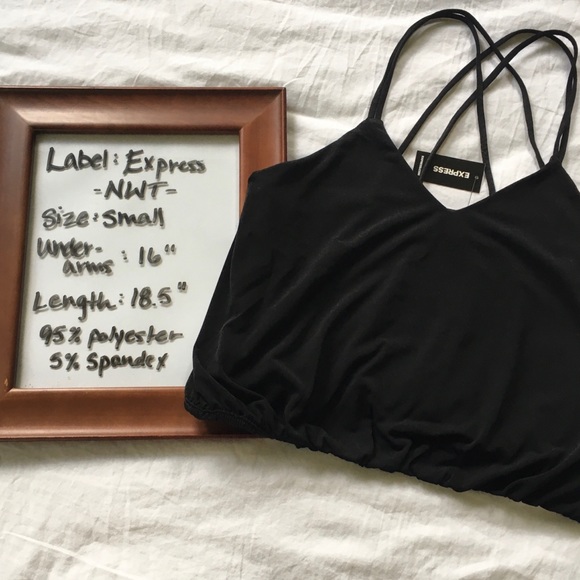 Label: Express
-NWT-
Size: Small
Under-
arms : 16"
Length: 18.5"
95% polyester
5% Spandex
EXPRESS